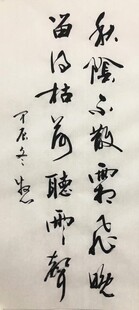 秋陰不散霜飛晚
留得枯荷聽雨聲